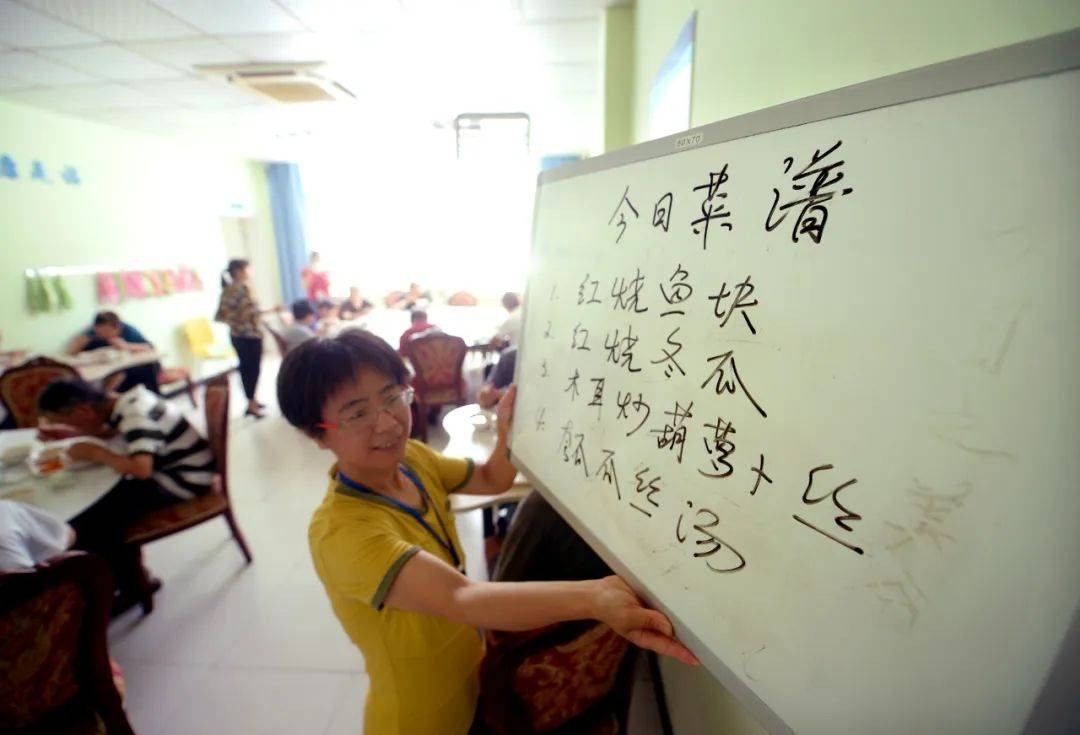 今日菜谱
1. 红烧鱼块
2. 红烧冬瓜
3. 木耳炒葫萝卜丝
4. 瓠瓜丝汤